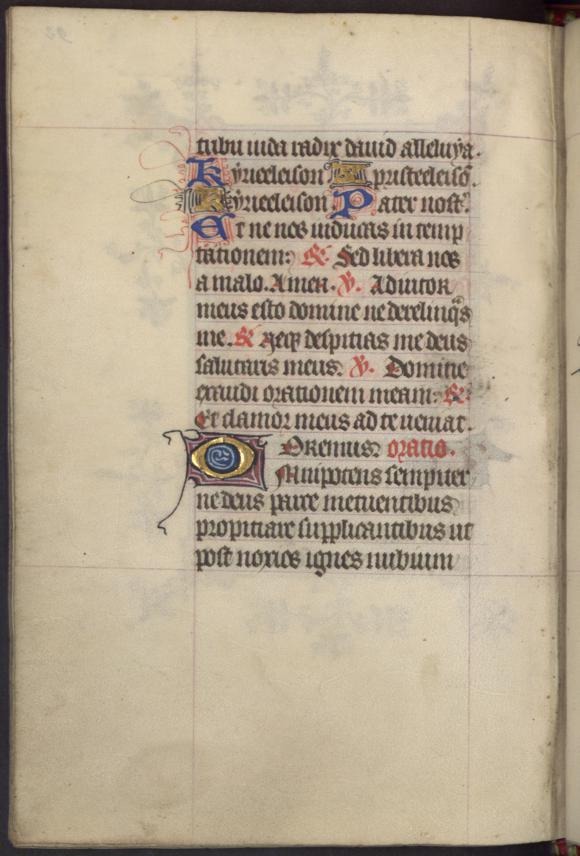 tribu iuda radix dauid alleluya.
Kyrieeleison Xpristeeleisō.
Kyrieeleison. Pater nost͛.
Et ne nos inducas in temp
tationem: ℟. Sed libera nos
a malo. Amen. ℣. Adiutor
meus esto domine ne derelinq̄s
me. ℟ Neq; despicias me deus
salutaris meus. ℣. Domine
exaudi orationem meam: ℟:
Et clamor meus ad te ueniat.
OREmus: oratio.
Omnipotens sempiter
ne deus parce metuentibus
propitiare supplicantibus ut
post noxios ignes nubium